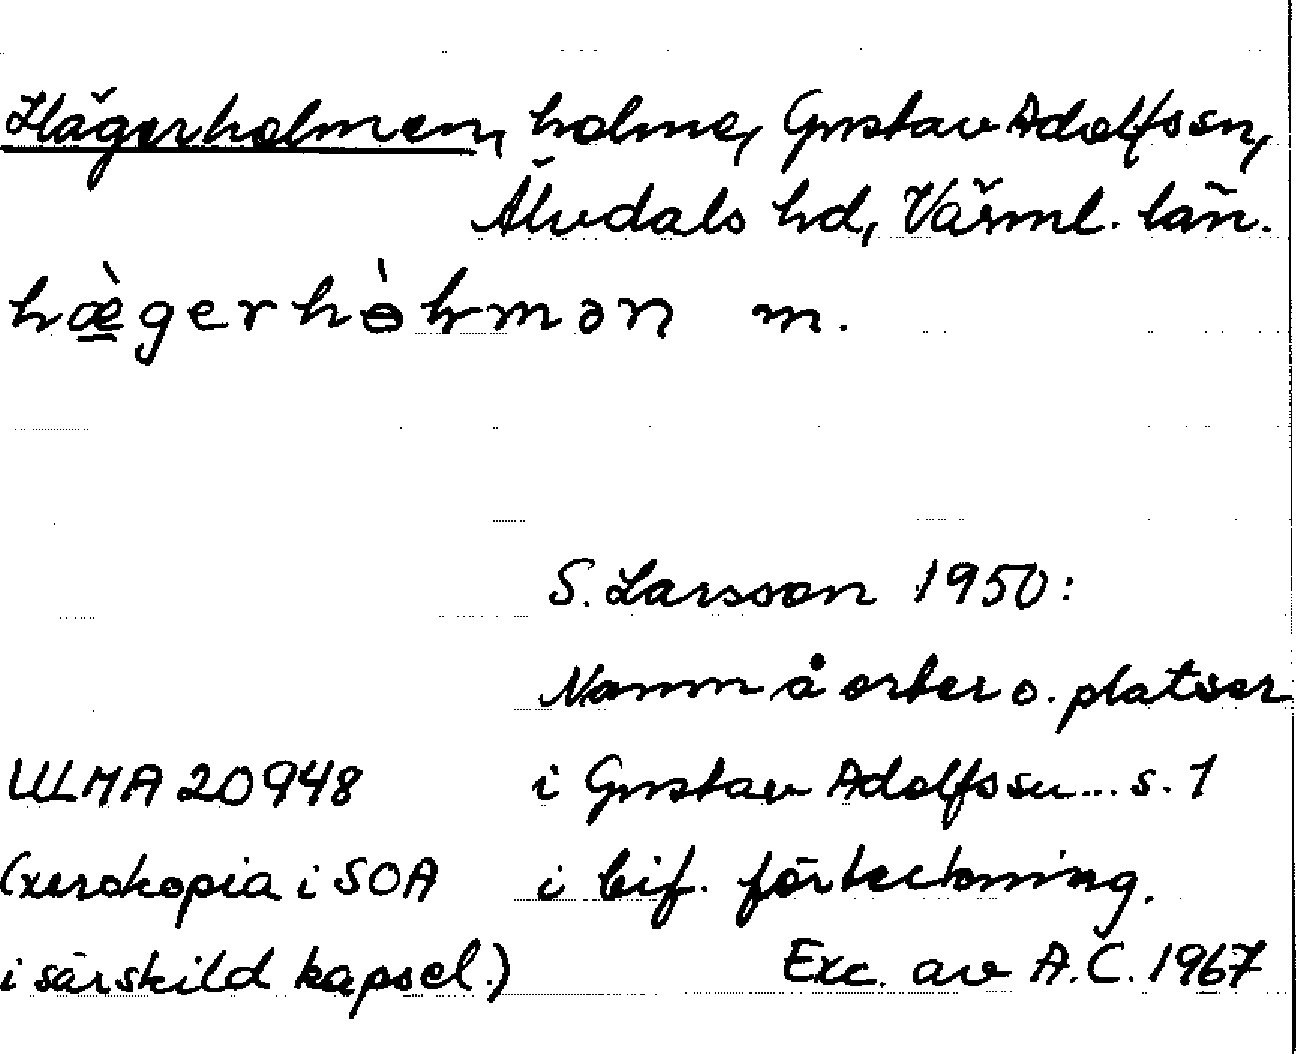 Hägerholmen, holme, Gustav Adolfs sn,
Älvdals hd, Värml. län.
hæ̲̀gerhɵ̀hmən m.
S. Larsson 1950:
Namn å orter o. platser
ULMA 20948 i Gustav Adolfs sn... s. 1
(xerokopia i SOA i bif. förteckning.
i särskild kapsel.) Exc. av A.C. 1967